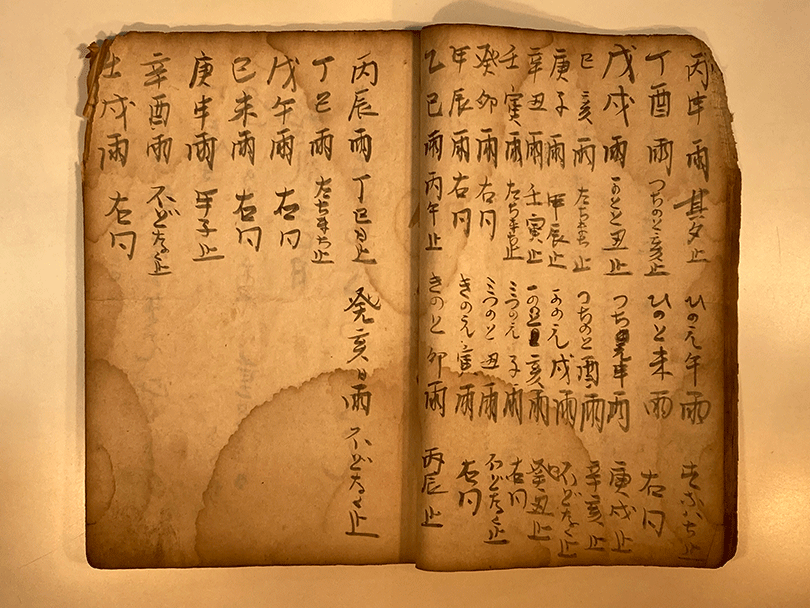 丙申雨 其夕止 ひのえ午雨
丁酉雨 つちのと亥止 ひのと未雨 右同
戊戌雨 かのと丑止 つちのえ申雨 庚戌止
己亥雨 たちまち止 つちのと酉雨 辛亥止
庚子雨 甲辰止 かのえ戌雨 ほどなく止
辛丑雨 壬寅止 かのと亥雨 癸丑止
壬寅雨 たちまち止 ミつのえ子雨 右同
癸卯雨 右同 ミつのと丑雨 ほどなく止
甲辰雨 右同 きのえ寅雨 右同
乙巳雨 丙午止 きのと卯雨 丙辰止
丙辰雨 丁巳日止 癸亥日雨 ほどなく止
丁巳雨 たちまち止
戊午雨 右同
己未雨 右同
庚申雨 甲子止
辛酉雨 ほどなく止
壬戌雨 右同